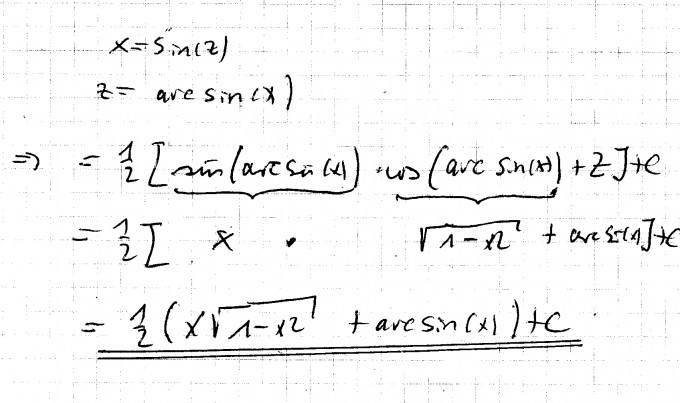 x = sin(z)
z = arc sin(x)
⇒ = 1/2 [sin(arc sin(x)) · cos(arc sin(x)) + z] + C
= 1/2 [ x · √(1-x²) + arc sin(x)] + C
= 1/2 (x√(1-x²) + arc sin(x)) + C